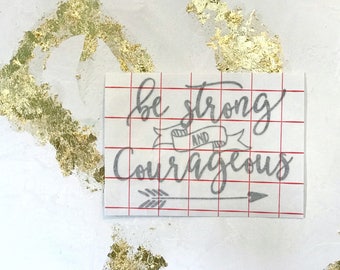 be strong
AND
Courageous